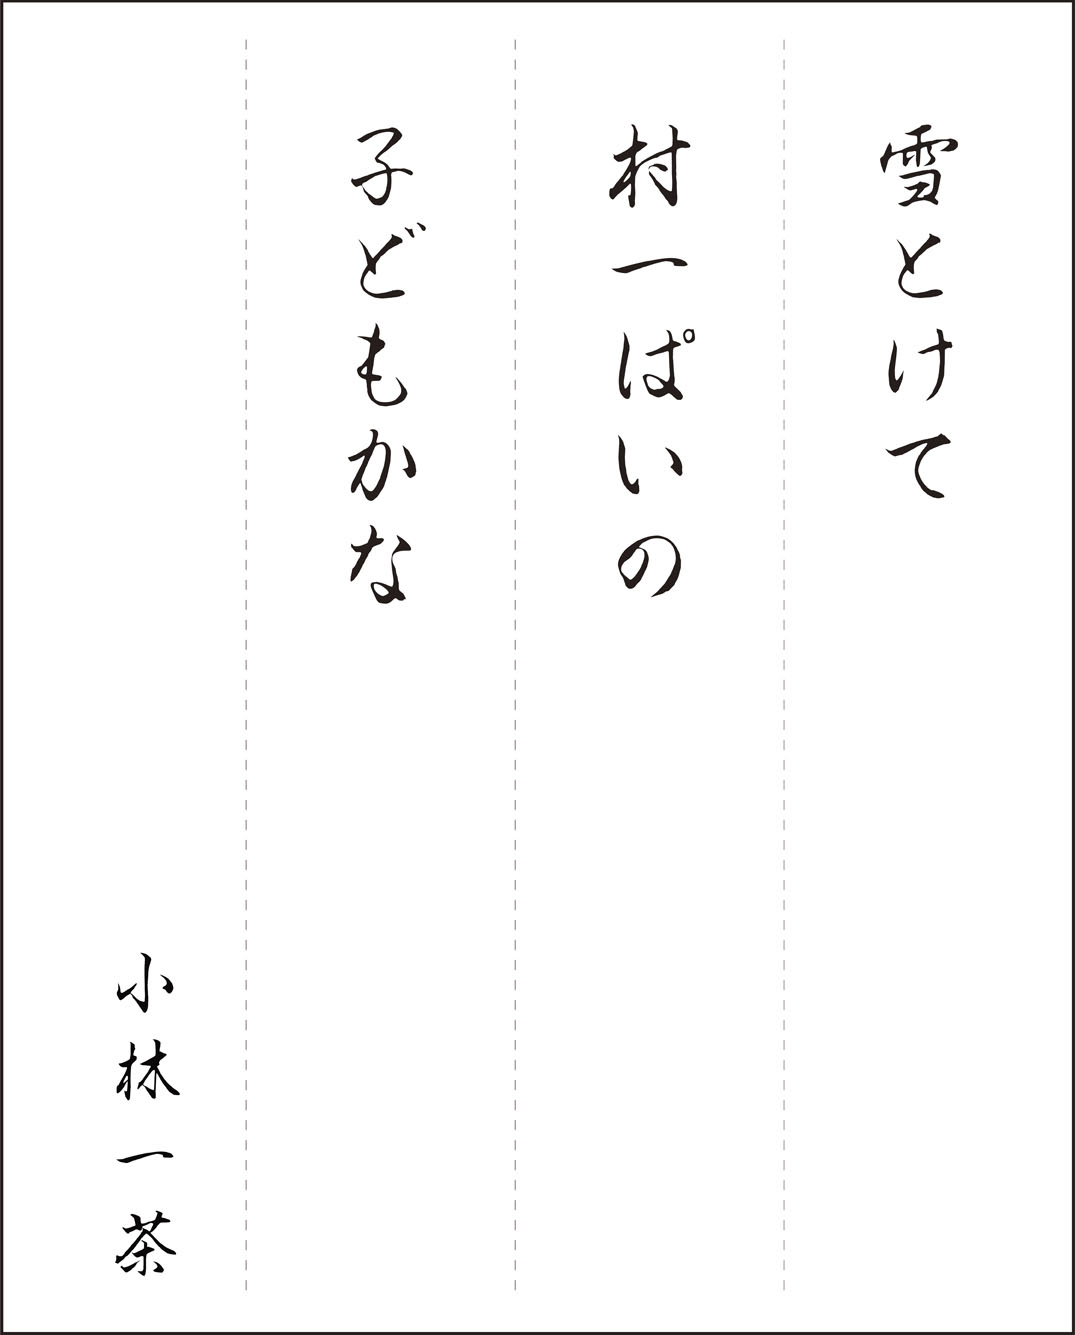 雪とけて
村一ぱいの
子どもかな
小林一茶